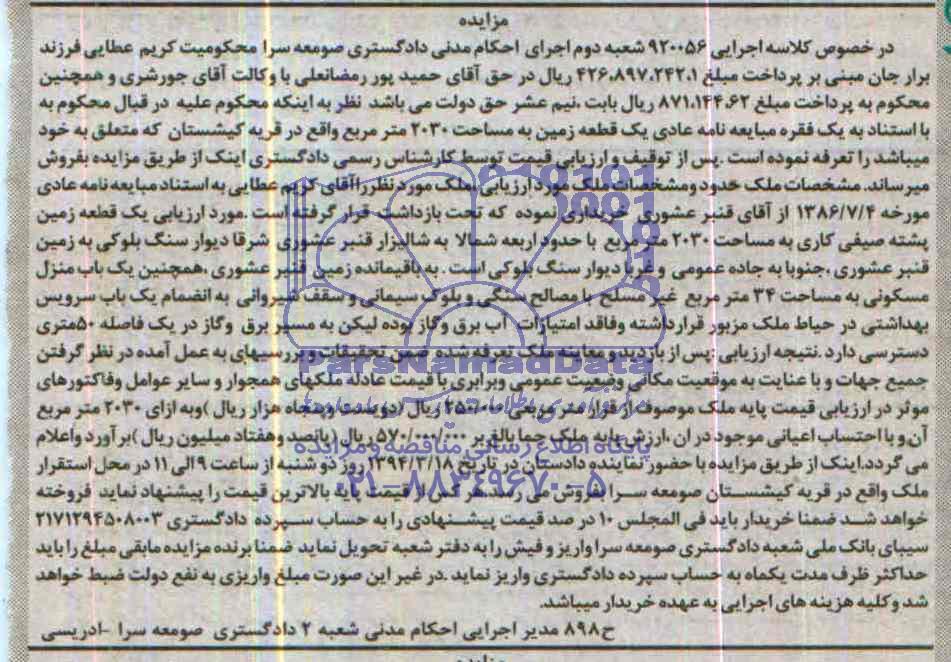 مزایده
در خصوص کلاسه اجرایی ۹۲۰۰۵۶ شعبه دوم اجرای احکام مدنی دادگستری صومعه سرا محکومیت کریم عطایی فرزند
برار جان مبنی بر پرداخت مبلغ ۴۲۶،۸۹۷،۲۴۲،۱ ریال در حق آقای حمید پور رمضانعلی با وکالت آقای جورشری و همچنین
محکوم به پرداخت مبلغ ۸۷۱،۱۴۴،۶۲ ریال بابت ،نیم عشر حق دولت می باشد نظر به اینکه محکوم علیه در قبال محکوم به
با استناد به یک فقره مبایعه نامه عادی یک قطعه زمین به مساحت ۲۰۳۰ متر مربع واقع در قریه کیشستان که متعلق به خود
میباشد را تعرفه نموده است .پس از توقیف و ارزیابی قیمت توسط کارشناس رسمی دادگستری اینک از طریق مزایده بفروش
میرساند. مشخصات ملک حدود ومشخصات ملک مورد ارزیابی،ملک مورد نظر راآقای کریم عطایی به استناد مبایعه نامه عادی
مورخه ۱۳۸۶/۷/۴ از آقای قنبر عشوری خریداری نموده که تحت بازداشت قرار گرفته است .مورد ارزیابی یک قطعه زمین
پشته صیفی کاری به مساحت ۲۰۳۰ متر مربع با حدود اربعه شمالا به شالیزار قنبر عشوری شرقا دیوار سنگ بلوکی به زمین
قنبر عشوری ،جنوبا به جاده عمومی و غربا دیوار سنگ بلوکی است . به باقیمانده زمین قنبر عشوری ،همچنین یک باب منزل
مسکونی به مساحت ۳۴ متر مربع غیر مسلح با مصالح سنگی و بلوک سیمانی و سقف شیروانی به انضمام یک باب سرویس
بهداشتی در حیاط ملک مزبور قرار داشته وفاقد امتیازات آب برق وگاز بوده لیکن به مسیر برق وگاز در یک فاصله ۵۰متری
دسترسی دارد .نتیجه ارزیابی :پس از بازدید و معاینه ملک تعرفه شده ضمن تحقیقات و بررسیهای به عمل آمده در نظر گرفتن
جمیع جهات و با عنایت به موقعیت مکانی وضعیت عمومی وبرابری با قیمت عادله ملکهای همجوار و سایر عوامل وفاکتورهای
موثر در ارزیابی قیمت پایه ملک موصوف از قرار متر مربعی ۲۵۰/۰۰۰ ریال (دویست وپنجاه هزار ریال )وبه ازای ۲۰۳۰ متر مربع
آن و با احتساب اعیانی موجود در ان ،ارزش پایه ملک جمعا بالغ بر ۵۷۰/۰۰۰/۰۰۰ ریال (پانصد وهفتاد میلیون ریال )بر آورد واعلام
می گردد.اینک از طریق مزایده با حضور نماینده دادستان در تاریخ ۱۳۹۴/۳/۱۸ روز دو شنبه از ساعت ۹ الی ۱۱ در محل استقرار
ملک واقع در قریه کیشستان صومعه سرا بفروش می رسد.هر کس از قیمت پایه بالاترین قیمت را پیشنهاد نماید فروخته
خواهد شد ضمنا خریدار باید فی المجلس ۱۰ در صد قیمت پیشنهادی را به حساب سپرده دادگستری ۲۱۷۱۲۹۴۵۰۸۰۰۳
سیبای بانک ملی شعبه دادگستری صومعه سرا واریز و فیش را به دفتر شعبه تحویل نماید ضمنا برنده مزایده مابقی مبلغ را باید
حداکثر ظرف مدت یکماه به حساب سپرده دادگستری واریز نماید .در غیر این صورت مبلغ واریزی به نفع دولت ضبط خواهد
شد وکلیه هزینه های اجرایی به عهده خریدار میباشد.
ح۸۹۸ مدیر اجرایی احکام مدنی شعبه ۲ دادگستری صومعه سرا -ادریسی
ParsNamadData
پایگاه اطلاع رسانی مناقصه و مزایده
۰۲۱-۸۸۳۴۹۶۷۰-۵